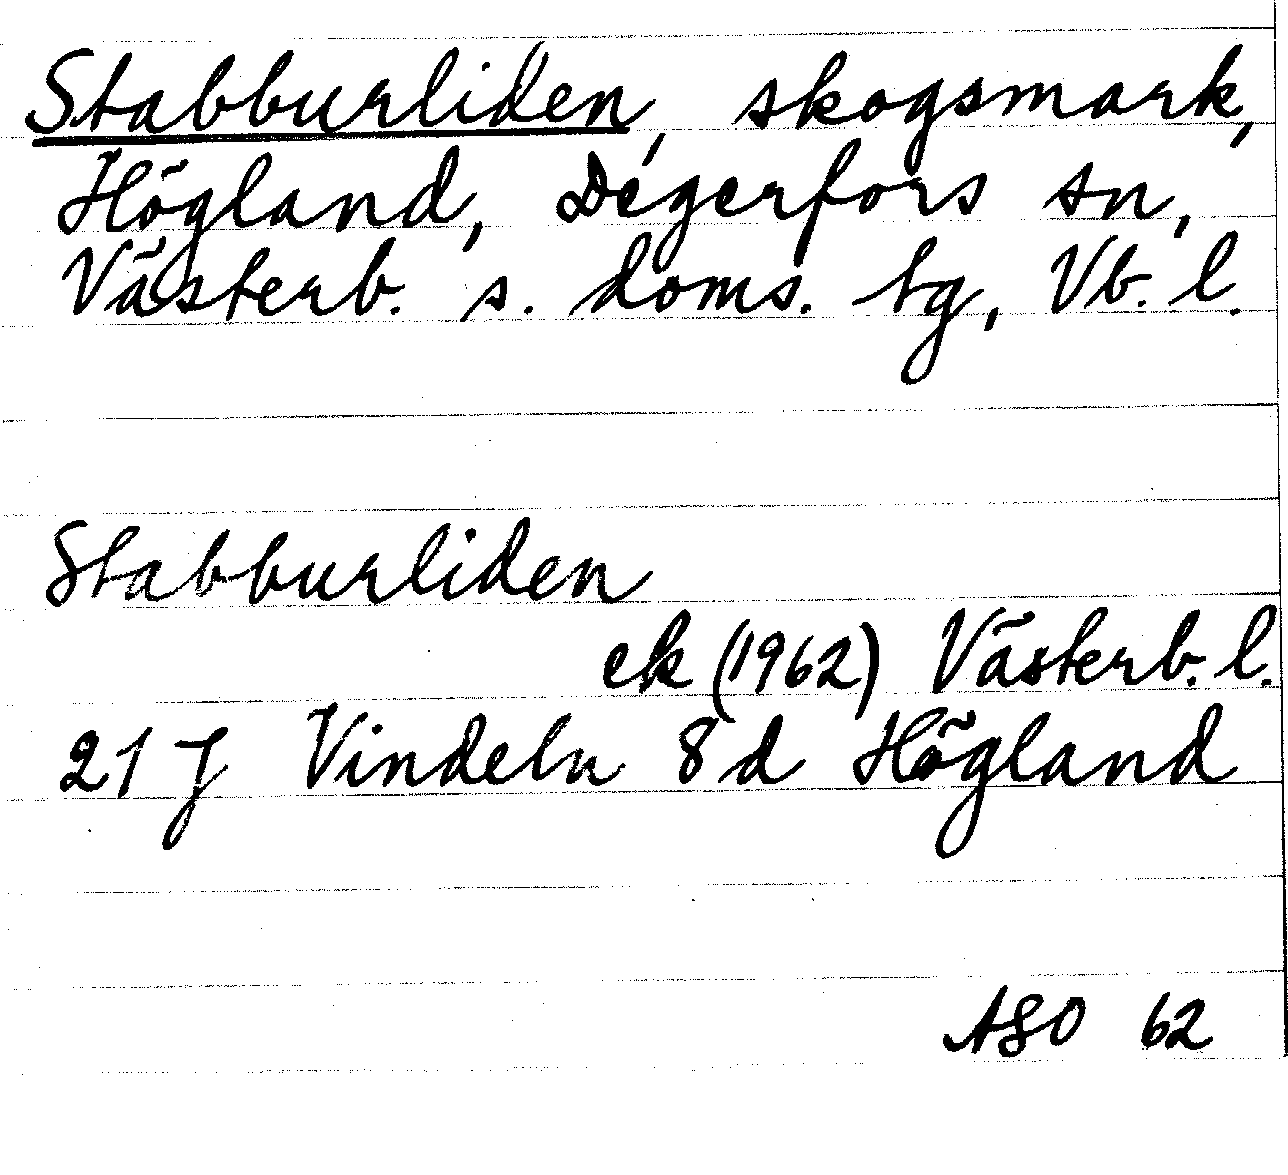 Stabburliden, skogsmark,
Högland, Degerfors sn,
Västerb. s. doms. tg, Vb. l.
Stabburliden
ek (1962) Västerb. l.
21 J Vindeln 8 d Högland
ASO 62